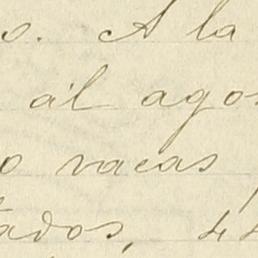 o. A la
al ago
o vacas
tados, 44